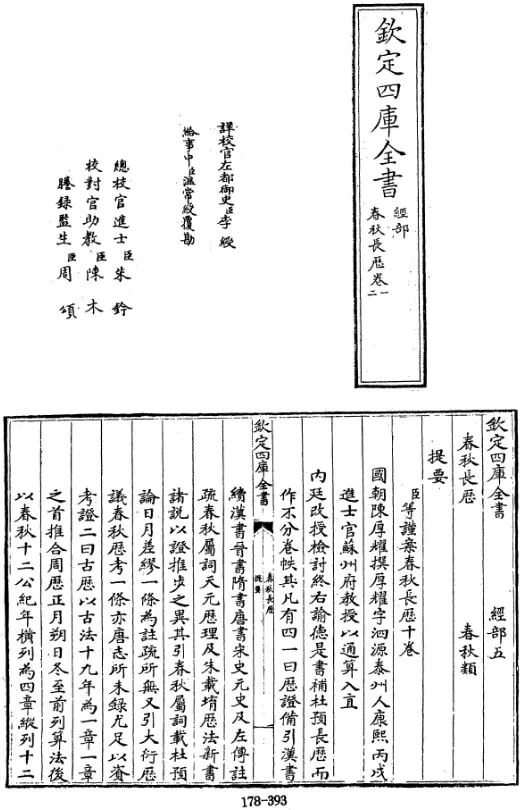 欽定四庫全書
經部
春秋長歷卷一
二
詳校官左都御史臣李綬
給事中臣温常綬覆勘
總校官進士臣朱鈐
校對官助教臣陳木
謄錄監生臣周頌
欽定四庫全書
經部五
春秋長歷
春秋類
提要
臣等謹案春秋長歷十卷
國朝陳厚耀撰厚耀字泗源泰州人康熙丙戌
進士官蘇州府教授以通算入直
内廷改授檢討終右諭德是書補杜預長歷而
作不分卷帙其凡有四一曰歷證備引漢書
欽定四庫全書
春秋長歷
提要
一
續漢書晉書隋書唐書宋史元史及左傳註
疏春秋屬詞天元歷理及朱載堉歷法新書
諸説以證推步之異其引春秋屬詞載杜預
論日月差繆一條為註疏所無又引大衍歷
議春秋歷考一條亦唐志所未録尤足以資
考證二曰古歷以古法十九年為一章一章
之首推合周歷正月朔日冬至前列算法後
以春秋十二公紀年横列為四章縱列十二
178-393